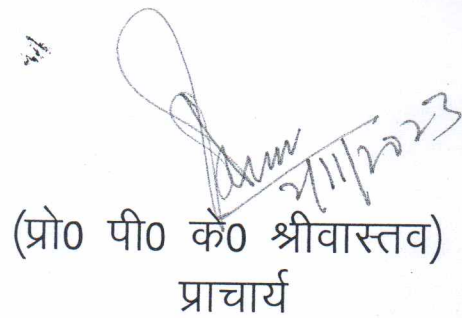 2/11/2023
(प्रो0 पी0 के0 श्रीवास्तव)
प्राचार्य